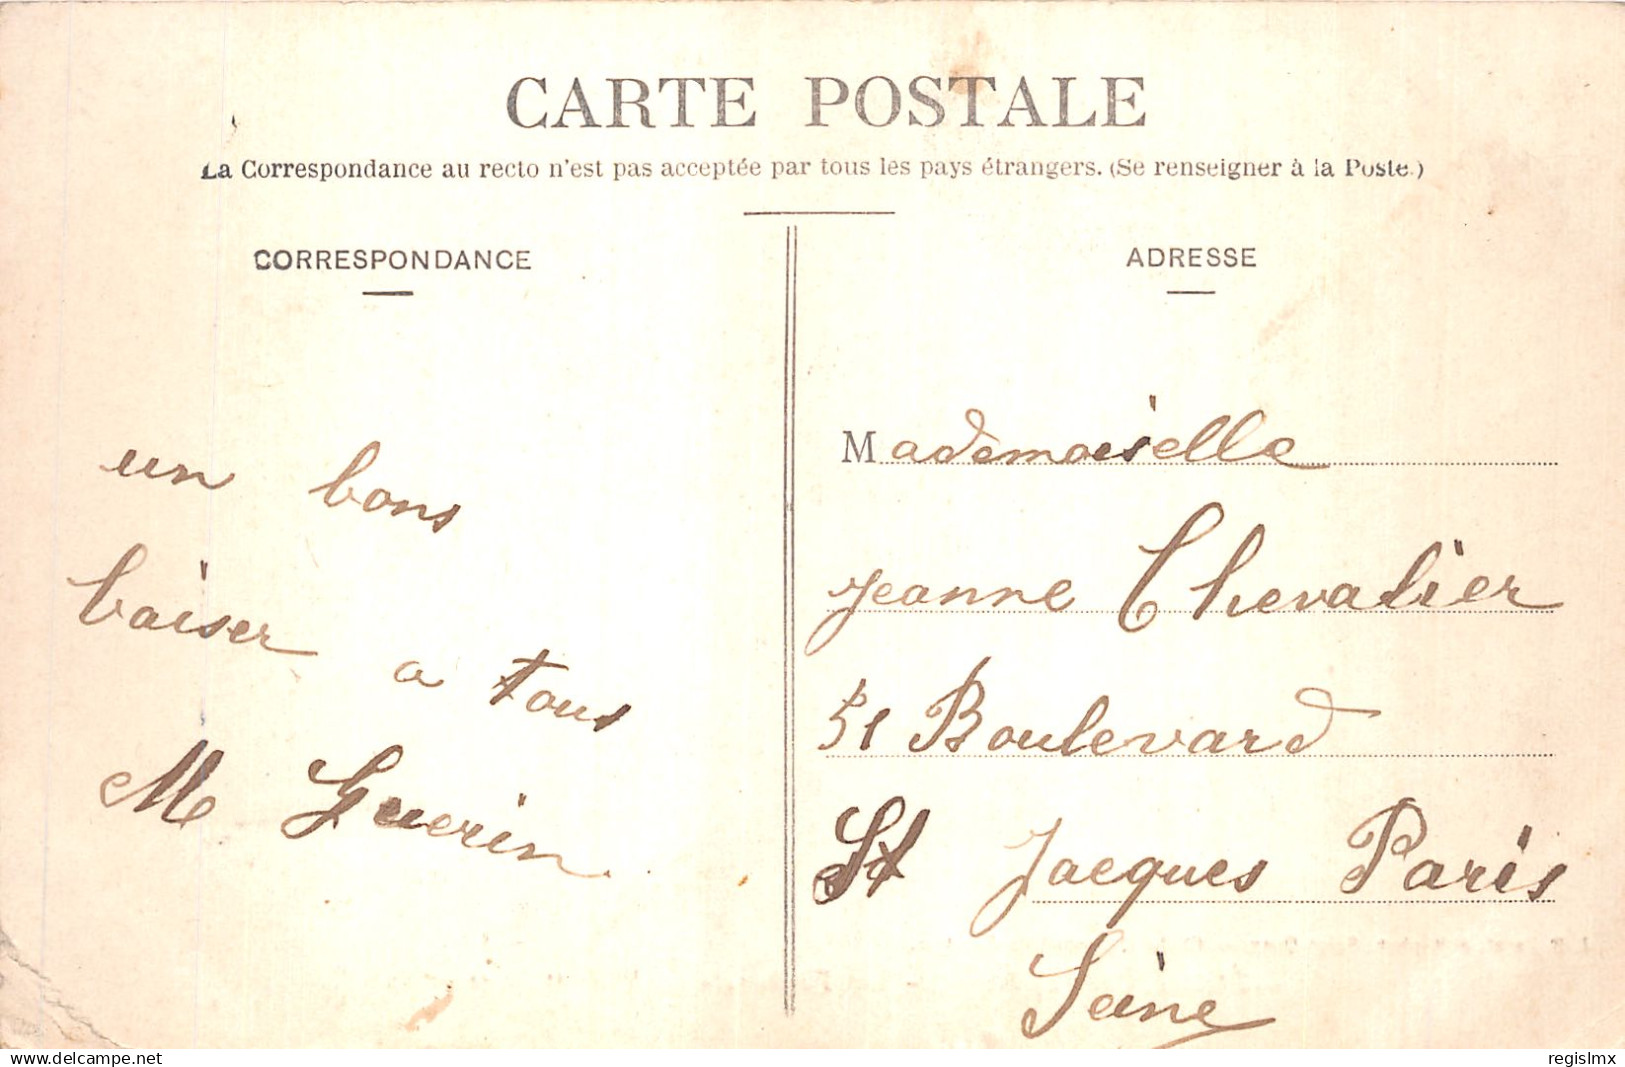 CARTE POSTALE
La Correspondance au recto n'est pas acceptée par tous les pays étrangers. (Se renseigner à la Poste.)
CORRESPONDANCE
un bons
baiser a tous
M Guerin
ADRESSE
Mademoiselle
Jeanne Chevalier
51 Boulevard
St Jacques Paris
Seine
delcampe.net
regislmx